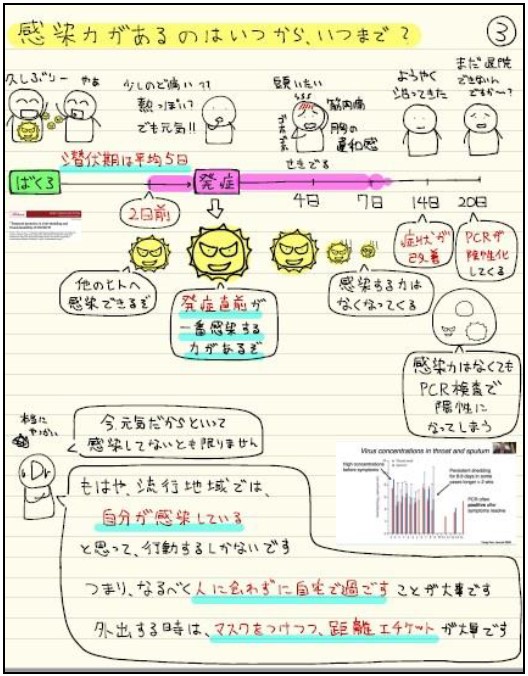 感染力があるのはいつから、いつまで？
③
久しぶりー
やぁ
少しのど痛い？？
熱っぽい？
でも元気！！
頭いたい
筋肉痛
胸の
違和感
せきでる
ようやく
治ってきた
まだ退院
できないん
ですか〜？
潜伏期は平均5日
ばくろ
発症
2日前
4日
7日
14日
20日
症状が
改善
PCRが
陰性化
してくる
他のヒトへ
感染できるぞ
発症直前が
一番感染する
力があるぞ
感染する力は
なくなってくる
感染力はなくても
PCR検査で
陽性に
なってしまう
本当に
やばい
今、元気だからといって
感染してないとも限りません
Virus concentrations in throat and sputum
High concentrations
before symptoms
Persistent shedding
PCR often
positive after
symptoms resolve
もはや、流行地域では、
自分が感染している
と思って、行動するしかないです
つまり、なるべく人に会わずに自宅で過ごすことが大事です
外出する時は、マスクをつけつつ、距離エチケットが大事です